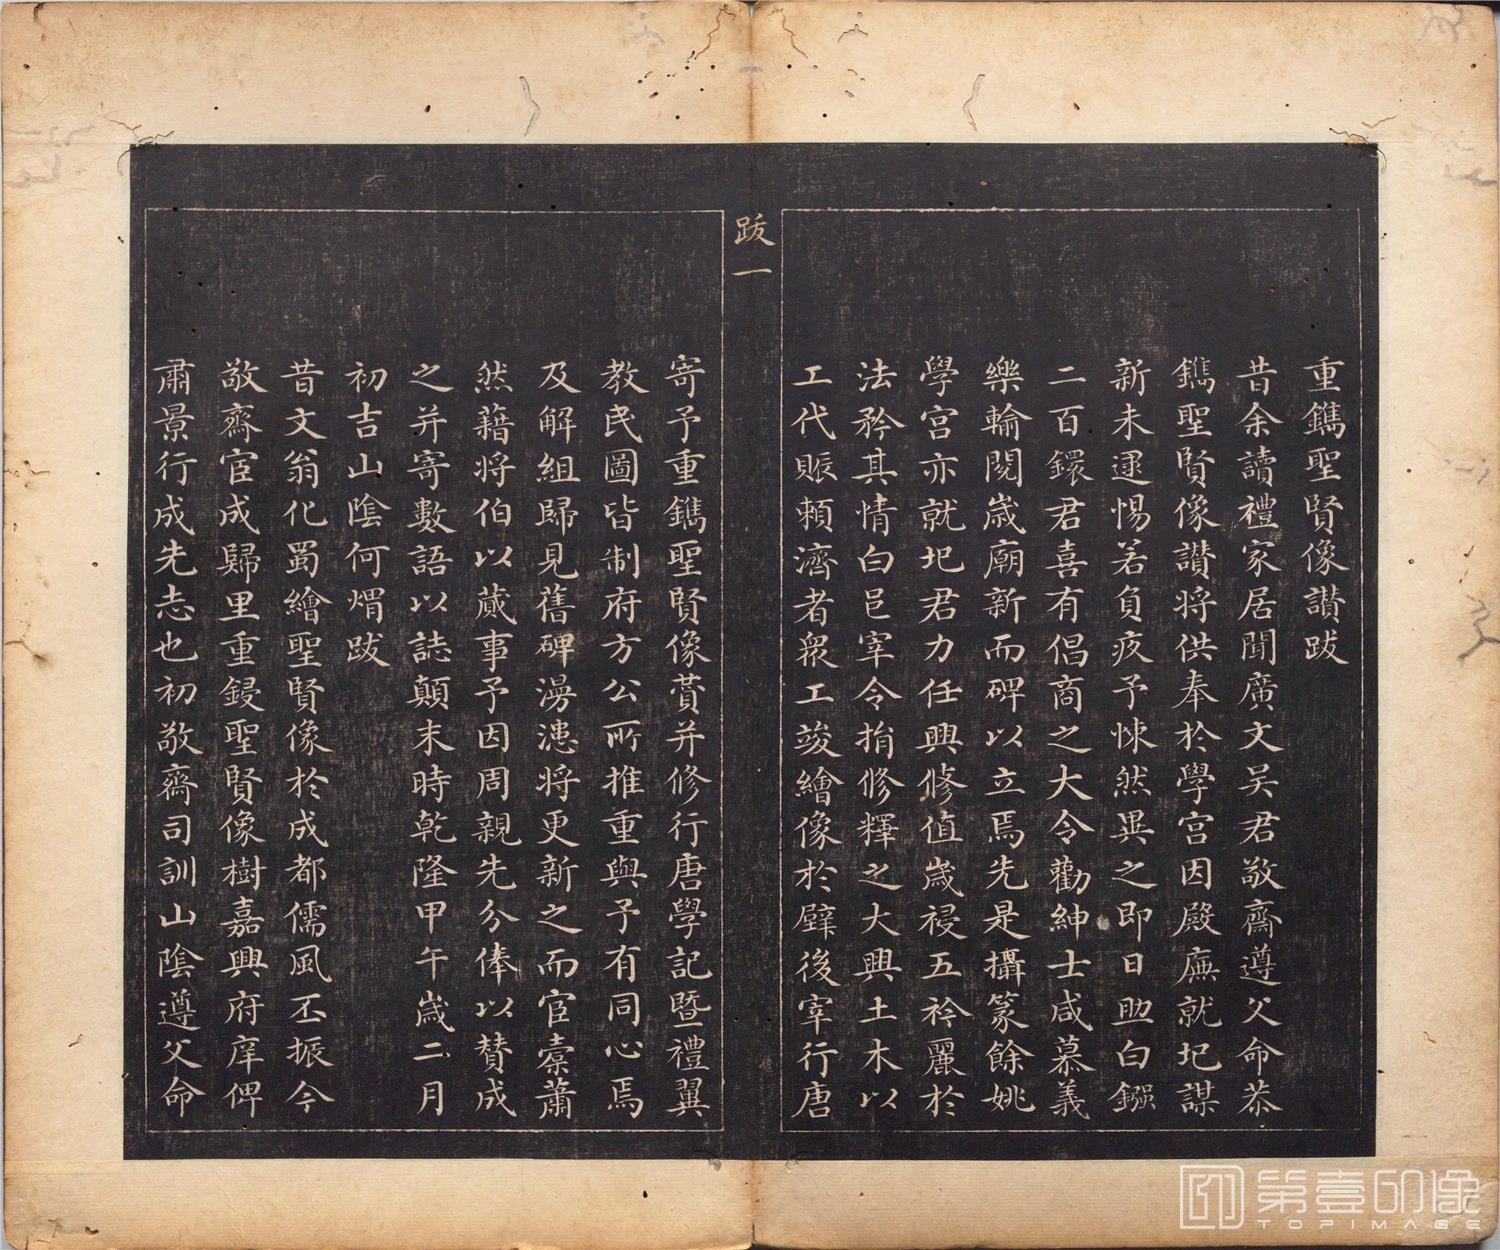 重鐫聖賢像讃跋
昔余讀禮家居聞廣文吴君敬齋遵父命恭
鐫聖賢像讃将供奉於學宫因殿廡就圮謀
新未逮惕若負疚予悚然異之即日助白鏹
二百鐶君喜有倡商之大令勸紳士咸慕義
樂輸閱歲廟新而碑以立焉先是攝篆餘姚
學宫亦就圮君力任興修值歲祲五衿麗於
法矜其情白邑宰令捐修釋之大興土木以
工代賑頼濟者衆工竣繪像於壁後宰行唐
跋一
寄予重鐫聖賢像賛并修行唐學記暨禮翼
教民圖皆制府方公所推重與予有同心焉
及解組歸見舊碑漫漶将更新之而宦橐蕭
然藉将伯以蕆事予因周親先分俸以賛成
之并寄數語以誌顛末時乾隆甲午歲二月
初吉山陰何煟跋
昔文翁化蜀繪聖賢像於成都儒風丕振今
敬齋宦成歸里重鋟聖賢像樹嘉興府庠俾
肅景行成先志也初敬齋司訓山陰遵父命
第壹印像
TOPIMAGE